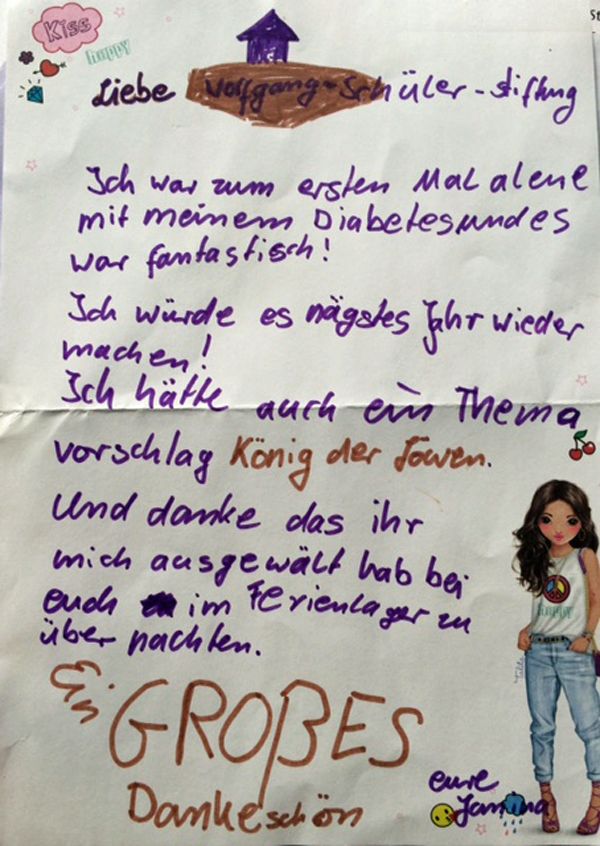 St
Kiss
happy
Liebe Wolfgang-Schüler-Stiftung
Ich war zum ersten Mal alene
mit meinem Diabetes und es
war fantastisch!
Ich würde es nägstes Jahr wieder
machen!
Ich hätte auch ein Thema
vorschlag König der Löwen.
Und danke das ihr
mich ausgewält hab bei
euch im Ferienlager zu
über nachten.
Ein
GROẞES
Dankeschön
happy
eure